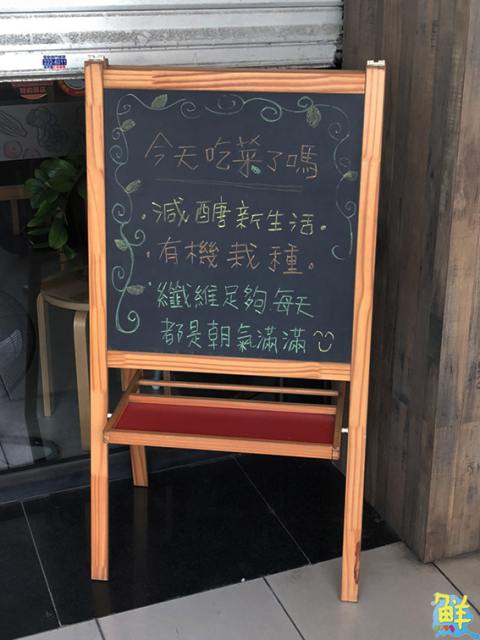 今天吃菜了嗎
·減醣新生活。
·有機栽種。
·纖維足夠每天
都是朝氣滿滿
鮮